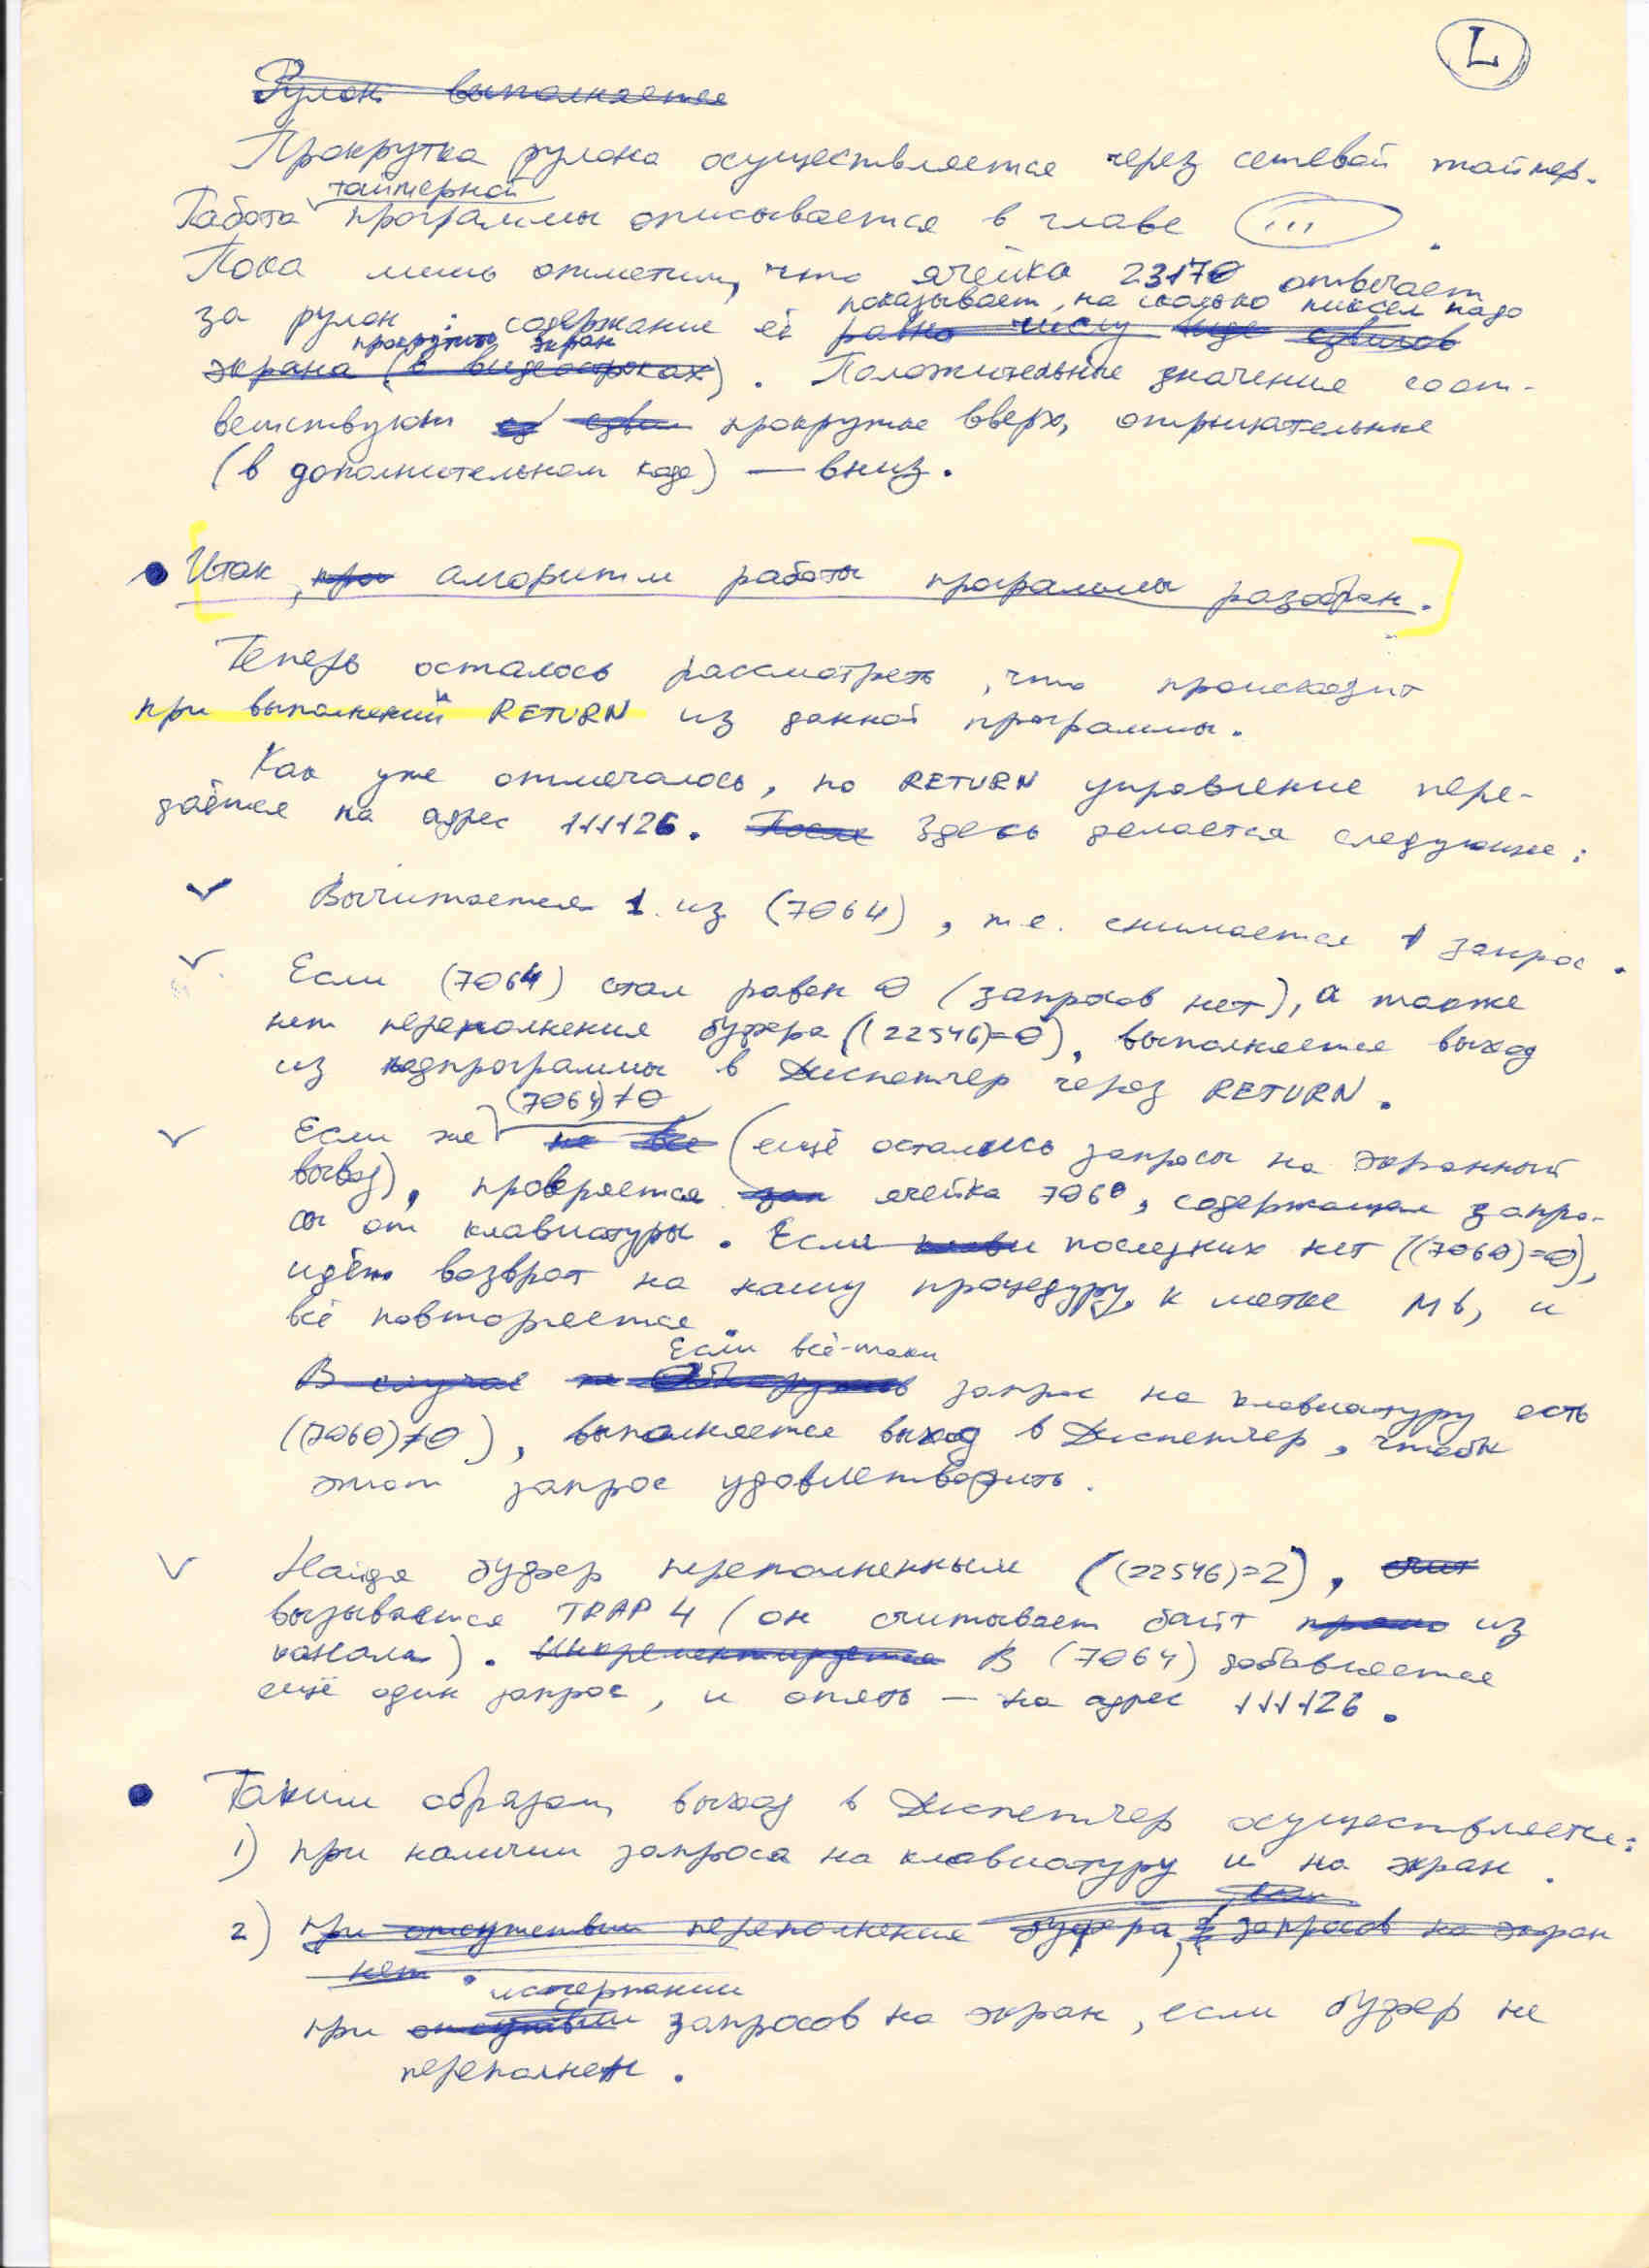 L
Рулон выполняется
Прокрутка рулона осуществляется через сетевой таймер.
таймерной
Работа программы описывается в главе (...) .
Пока лишь отметим, что ячейка 23170 отвечает
показывает, на сколько пиксел надо
за рулон : содержание её равно числу сдвигов
прокрутить экран
экрана (в видеостроках) . Положительные значения соот-
ветствуют сдви прокрутке вверх, отрицательные
(в дополнительном коде) — вниз.
Итак, при алгоритм работы программы разобран.
Теперь осталось рассмотреть, что происходит
при выполнении RETURN из данной программы.
Как уже отмечалось, по RETURN управление пере-
даётся на адрес 111126. После Здесь делается следующее:
Вычитается 1 из (7064), т.е. снимается 1 запрос.
Если (7064) стал равен 0 (запросов нет), а также
нет переполнения буфера ((22546)=0), выполняется выход
из подпрограммы в Диспетчер через RETURN.
(7064)≠0
Если же не все (ещё остались запросы на экранный
вывод), проверяется зап ячейка 7060, содержащая запро-
сы от клавиатуры. Если клави последних нет ((7060)=0),
идёт возврат на нашу процедуру, к метке М6, и
всё повторяется.
Если всё-таки
В случае запрос на клавиатуру есть
((7060)≠0), выполняется выход в Диспетчер, чтобы
этот запрос удовлетворить.
Найдя буфер переполненным ((22546)=2),
вызывается TRAP 4 (он считывает байт прямо из
канала). Инкрементируется В (7064) добавляется
ещё один запрос, и опять — на адрес 111126.
Таким образом, выход в Диспетчер осуществляется:
1) при наличии запроса на клавиатуру и на экран.
2) при отсутствии переполнения буфера, запросов на экран
нет.
исчерпании
при отсутствии запросов на экран, если буфер не
переполнен.